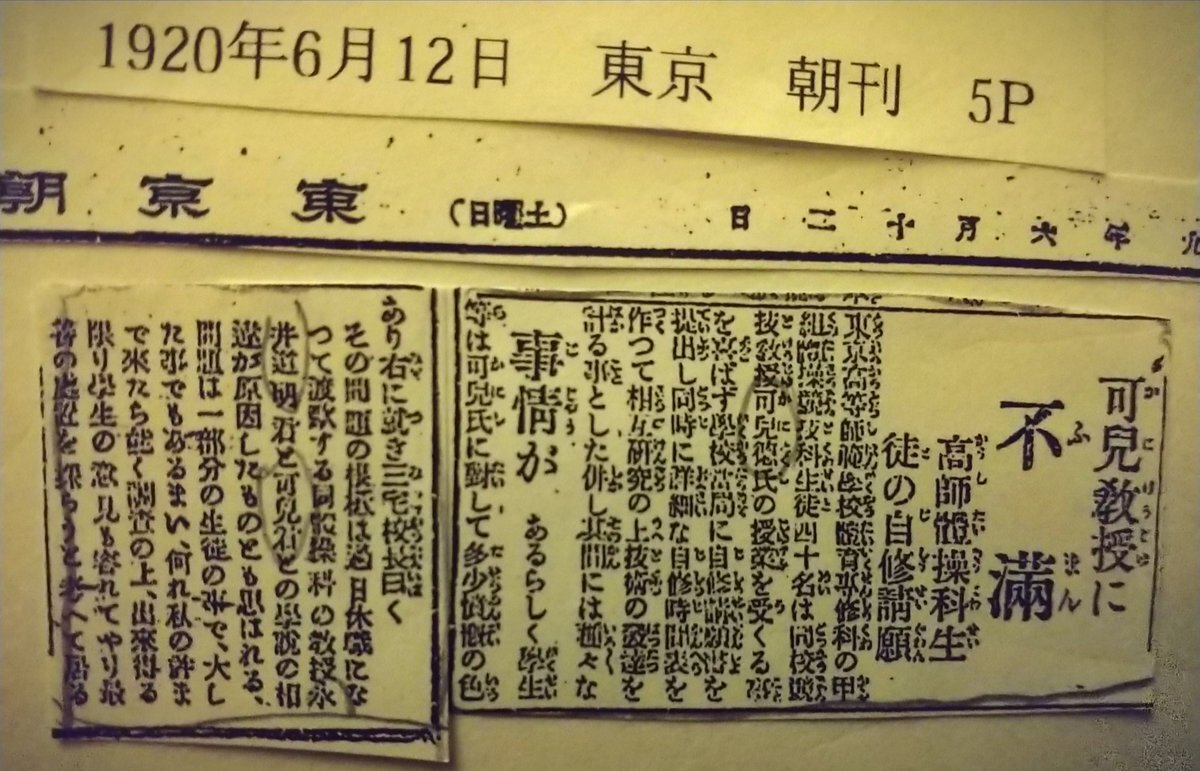 1920年6月12日　東京　朝刊　5P
年六月十二日　（土曜日）　東京朝
可兒教授に
不滿
高師體操科生
徒の自修請願
東京高等師範學校體育專修科の甲
組體操競技科生徒四十名は同校競
技教授可兒德氏の授業を受くる事
を喜ばず學校當局に自修請願書を
提出し同時に詳細な自修時間表を
作つて相互研究の上技術の發達を
計る事とした併し其間には種々な
事情が　あるらしく學生
等は可兒氏に對して多少憤慨の色
あり右に就き三宅校長曰く
その問題の根柢は過日休職にな
つて渡歐する同校體操科の教授永
井道明君と可兒君との學說の相
違が原因したものとも思はれる、
問題は一部分の生徒の事で、大し
た事でもあるまい、何れ私の許ま
で來たら能く調査の上、出來得る
限り學生の意見も容れてやり最
善の處置を採らうと考へて居る